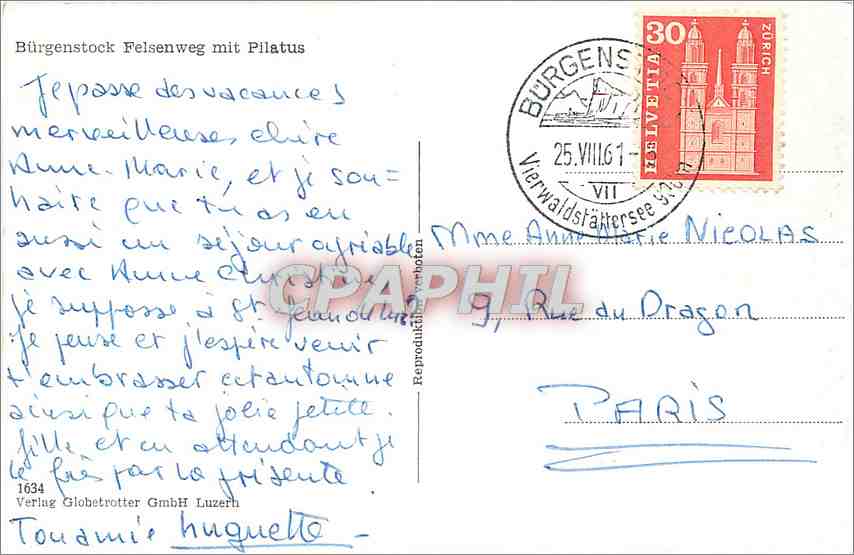 Bürgenstock Felsenweg mit Pilatus
Je passe des vacances
merveilleuses, chère
Anne-Marie, et je sou=
haite que tu as eu
aussi un séjour agréable
avec Anne Christine
je suppose à St Jean de Luz
Je pense et j'espère venir
t'embrasser cet automne
ainsi que ta jolie petite
fille, et en attendant je
le fais par la présente
1634
Verlag Globetrotter GmbH Luzern
Ton amie Huguette -
Reproduktion verboten
CPAPHIL
BÜRGENST
25.VIII.61-
VII
Vierwaldstättersee 910 m
30
HELVETIA
ZÜRICH
Mme Anne Marie NICOLAS
9, Rue du Dragon
PARIS